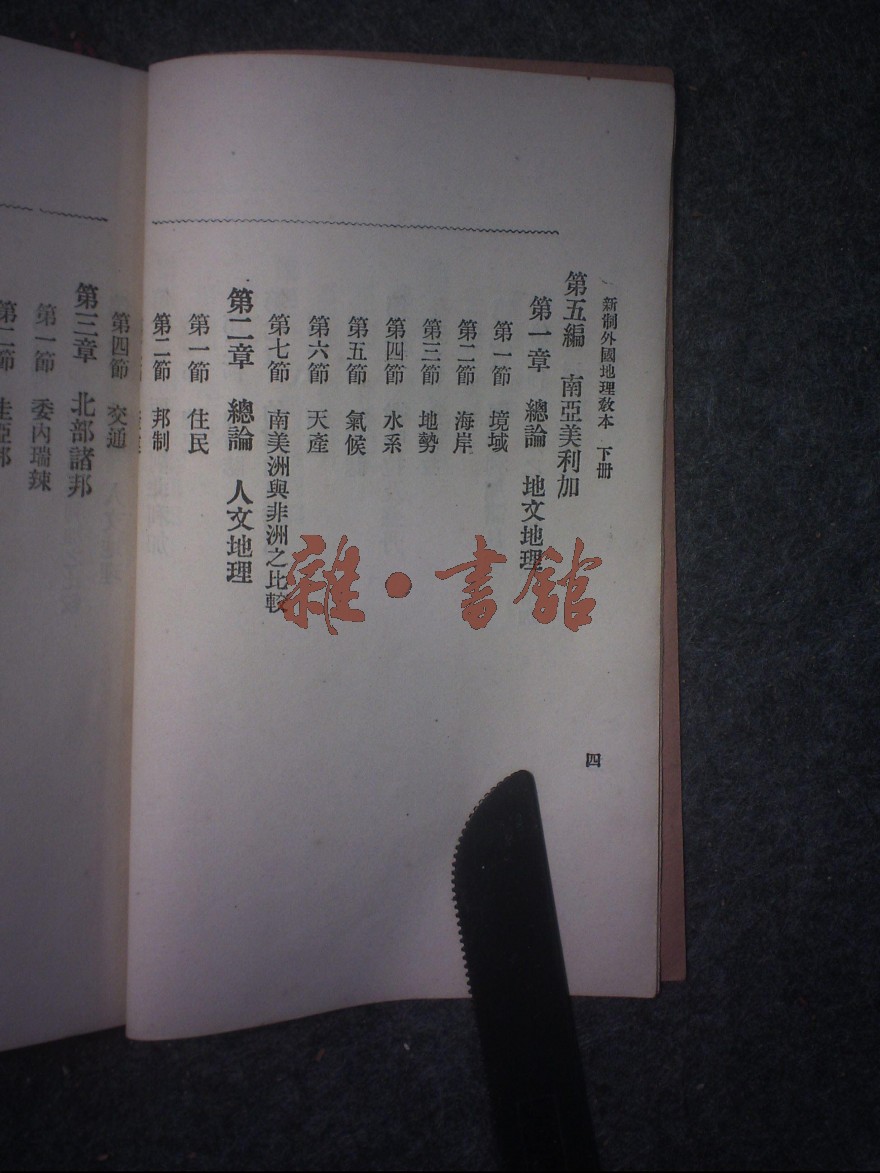 新制外國地理教本 下册
四
第五編 南亞美利加
第一章 總論 地文地理
第一節 境域
第二節 海岸
第三節 地勢
第四節 水系
第五節 氣候
第六節 天產
第七節 南美洲與非洲之比較
第二章 總論 人文地理
第一節 住民
第二節 邦制
第四節 交通
第三章 北部諸邦
第一節 委內瑞辣
第二節 圭亞那
雜·書館